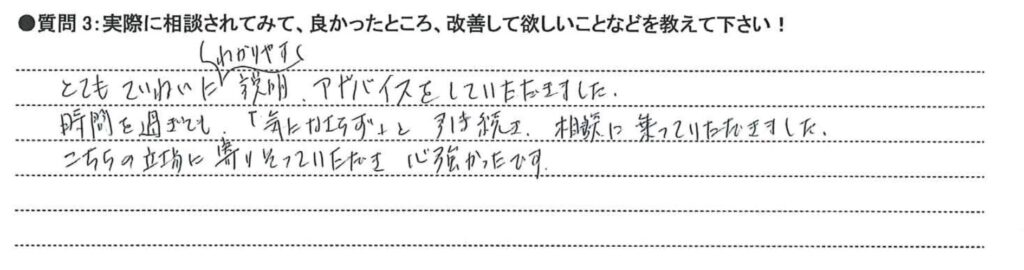 ●質問3:実際に相談されてみて、良かったところ、改善して欲しいことなどを教えて下さい!
わかりやすく
とても ていねいに 説明、アドバイスをしていただきました。
時間を過ぎても、「気になさらず」と 引き続き、相談に乗っていただきました。
こちらの立場に寄りそっていただき 心強かったです。